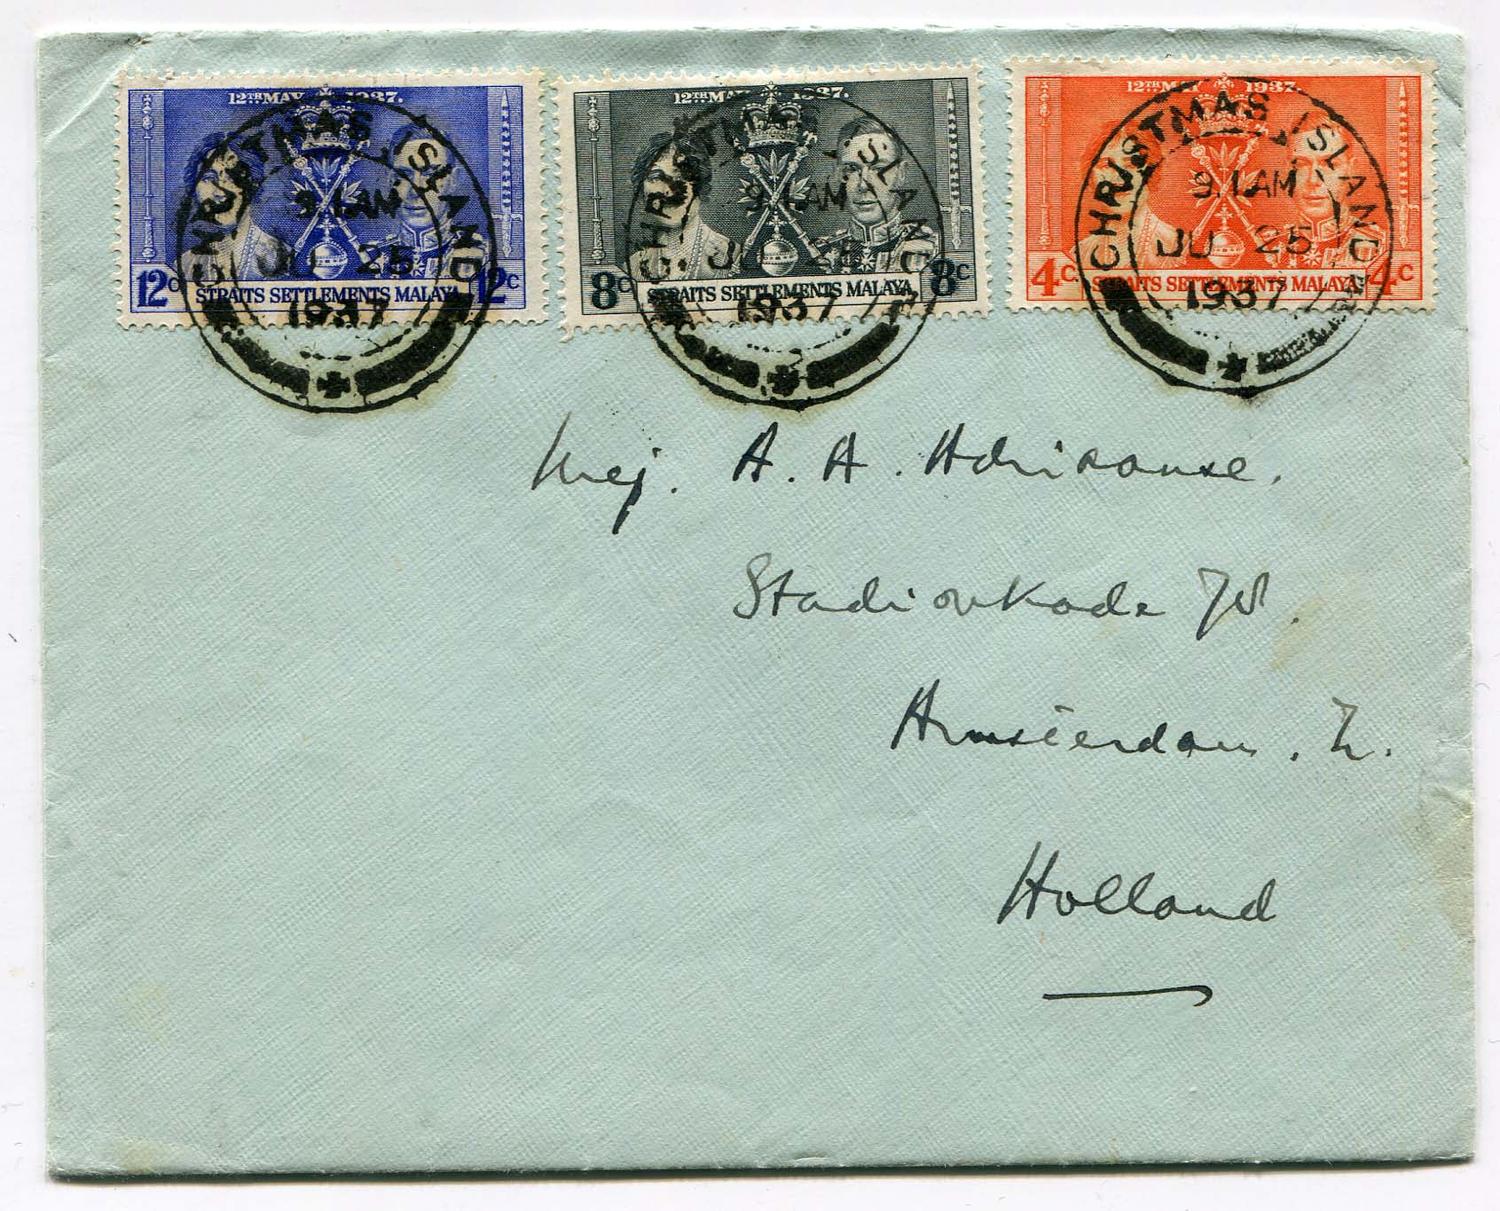 12TH MAY 1937.
12c 12c
STRAITS SETTLEMENTS MALAYA
CHRISTMAS ISLAND
9 1 AM
JU 25
1937
12TH MAY 1937.
8c 8c
STRAITS SETTLEMENTS MALAYA
CHRISTMAS ISLAND
9 1 AM
JU 25
1937
12TH MAY 1937.
4c. 4c
STRAITS SETTLEMENTS MALAYA
CHRISTMAS ISLAND
9 1 AM
JU 25
1937
Mej. A. A. Adriaanse.
Stadionkade
Amsterdam. Z.
Holland